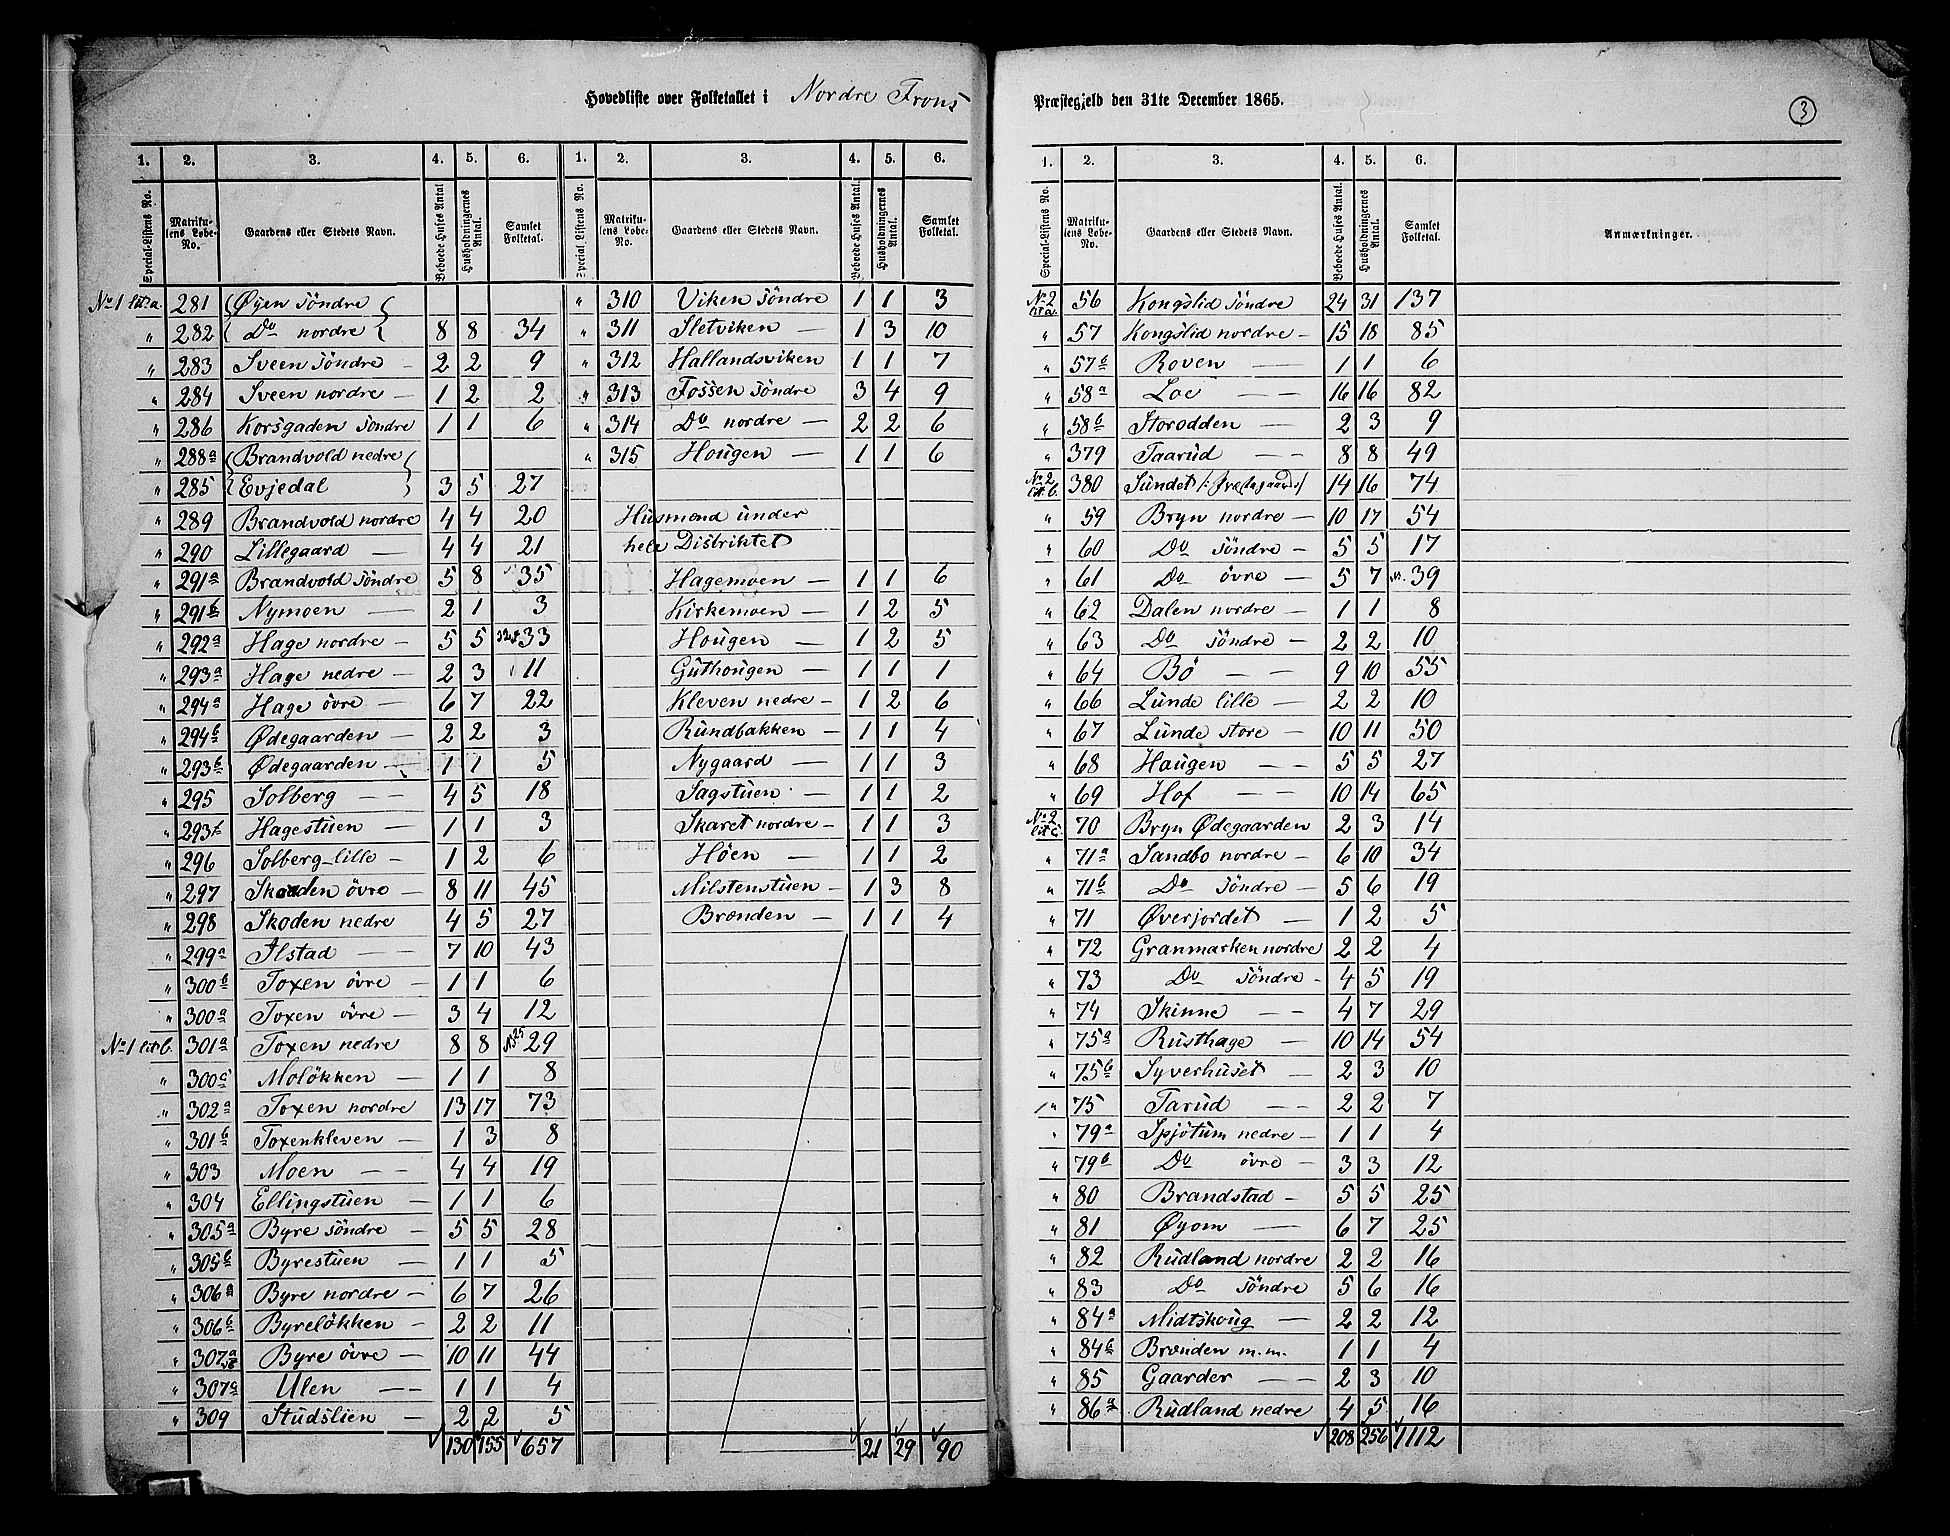 Hovedliste over Folketallet i Nordre Frons
1. 2. 3. 4. 5. 6. 1. 2. 3. 4. 5. 6.
Special-Listens No. Matrikulens Løbe-No. Gaardens eller Stedets Navn. Beboede Huses Antal Husholdningernes Antal. Samlet Folketal. Special Listens No. Matrikulens Løbe-No. Gaardens eller Stedets Navn. Beboede Huses Antal. Husholdningernes Antal. Samlet Folketal.
No 1 lit. a. 281 Øyen söndre
" 282 Do nordre 8 8 34
" 283 Sveen söndre 2 2 9
" 284 Sveen nordre 1 2 2
" 286 Korsgaden söndre 1 1 6
" 288a Brandvold nedre
" 285 Evjedal 3 5 27
" 289 Brandvold nordre 4 4 20
" 290 Lillegaard 4 4 21
" 291a Brandvold söndre 5 8 35
" 291b Nymoen 2 1 3
" 292a Hage nordre 5 5 33
" 293a Hage nedre 2 3 11
" 294a Hage övre 6 7 22
" 294b Ødegaarden 2 2 3
" 293b Ødegaarden 1 1 5
" 295 Solberg 4 5 18
" 293 Hagestuen 1 1 3
" 296 Solberg lille 1 2 6
" 297 Skoden övre 8 11 45
" 298 Skoden nedre 4 5 27
" 299a Alstad 7 10 43
" 300b Toxen övre 1 1 6
" 300a Toxen övre 3 4 12
No 1 lit b. 301a Toxen nedre 8 8 29
" 300c Moløkken 1 1 8
" 302a Toxen nordre 13 17 73
" 301b Toxenkleven 1 3 8
" 303 Moen 4 4 19
" 304 Ellingstuen 1 1 6
" 305a Byre söndre 5 5 28
" 305b Byrestuen 1 1 5
" 306a Byre nordre 6 7 26
" 306b Byrelökken 2 2 11
" 307a Byre övre 10 11 44
" 307c Ulen 1 1 4
" 309 Studslien 2 2 5
130 155 657
" 310 Viken söndre 1 1 3
" 311 Sletviken 1 3 10
" 312 Hallandsviken 1 1 7
" 313 Fossen söndre 3 4 9
" 314 Do nordre 2 2 6
" 315 Hougen 1 1 6
Husmænd under
hele Distriktet
Hagemoen 1 1 6
Kirkemoen 1 2 5
Hougen 1 2 5
Guthougen 1 1 1
Kleven nedre 1 2 6
Rundbakken 1 1 4
Nygaard 1 1 3
Sagstuen 1 1 2
Skaret nordre 1 1 3
Höen 1 1 2
Milstenstuen 1 3 8
Brænden 1 1 4
21 29 90
Præstegjeld den 31te December 1865.
3
1. 2. 3. 4. 5. 6.
Special-Listens No. Matrikulens Løbe-No. Gaardens eller Stedets Navn. Beboede Huses Antal. Husholdningernes Antal. Samlet Folketal. Anmærkninger.
No 2 lit a. 56 Kongslid söndre 24 31 137
" 57 Kongslid nordre 15 18 85
" 57b Roven 1 1 6
" 58a Loe 16 16 82
" 58b Storodden 2 3 9
" 379 Taarud 8 8 49
No 2 lit. b. 380 Sundet /: Præstegaards/ 14 16 74
" 59 Bryn nordre 10 17 54
" 60 Do söndre 5 5 17
" 61 Do övre 5 7 39
" 62 Dalen nordre 1 1 8
" 63 Do söndre 2 2 10
" 64 Bö 9 10 55
" 66 Lunde lille 2 2 10
" 67 Lunde store 10 11 50
" 68 Haugen 5 5 27
" 69 Hof 10 14 65
No 2 lit c. 70 Bryn Ødegaarden 2 3 14
" 71a Sandbo nordre 6 10 34
" 71b Do söndre 5 6 19
" 71 Øverjordet 1 2 5
" 72 Granmarken nordre 2 2 4
" 73 Do söndre 4 5 19
" 74 Skinne 4 7 29
" 75a Rusthage 10 14 54
" 75b Syverhuset 2 3 10
" 75 Tarud 2 2 7
" 79a Spjötum nedre 1 1 4
" 79b Do övre 3 3 12
" 80 Brandstad 5 5 25
" 81 Øyom 6 7 25
" 82 Rudland nordre 2 2 16
" 83 Do söndre 5 6 16
" 84a Midtskoug 2 2 12
" 84b Brænden m.m. 1 1 4
" 85 Gaarder 2 3 10
" 86a Rudland nedre 4 5 16
208 256 1112